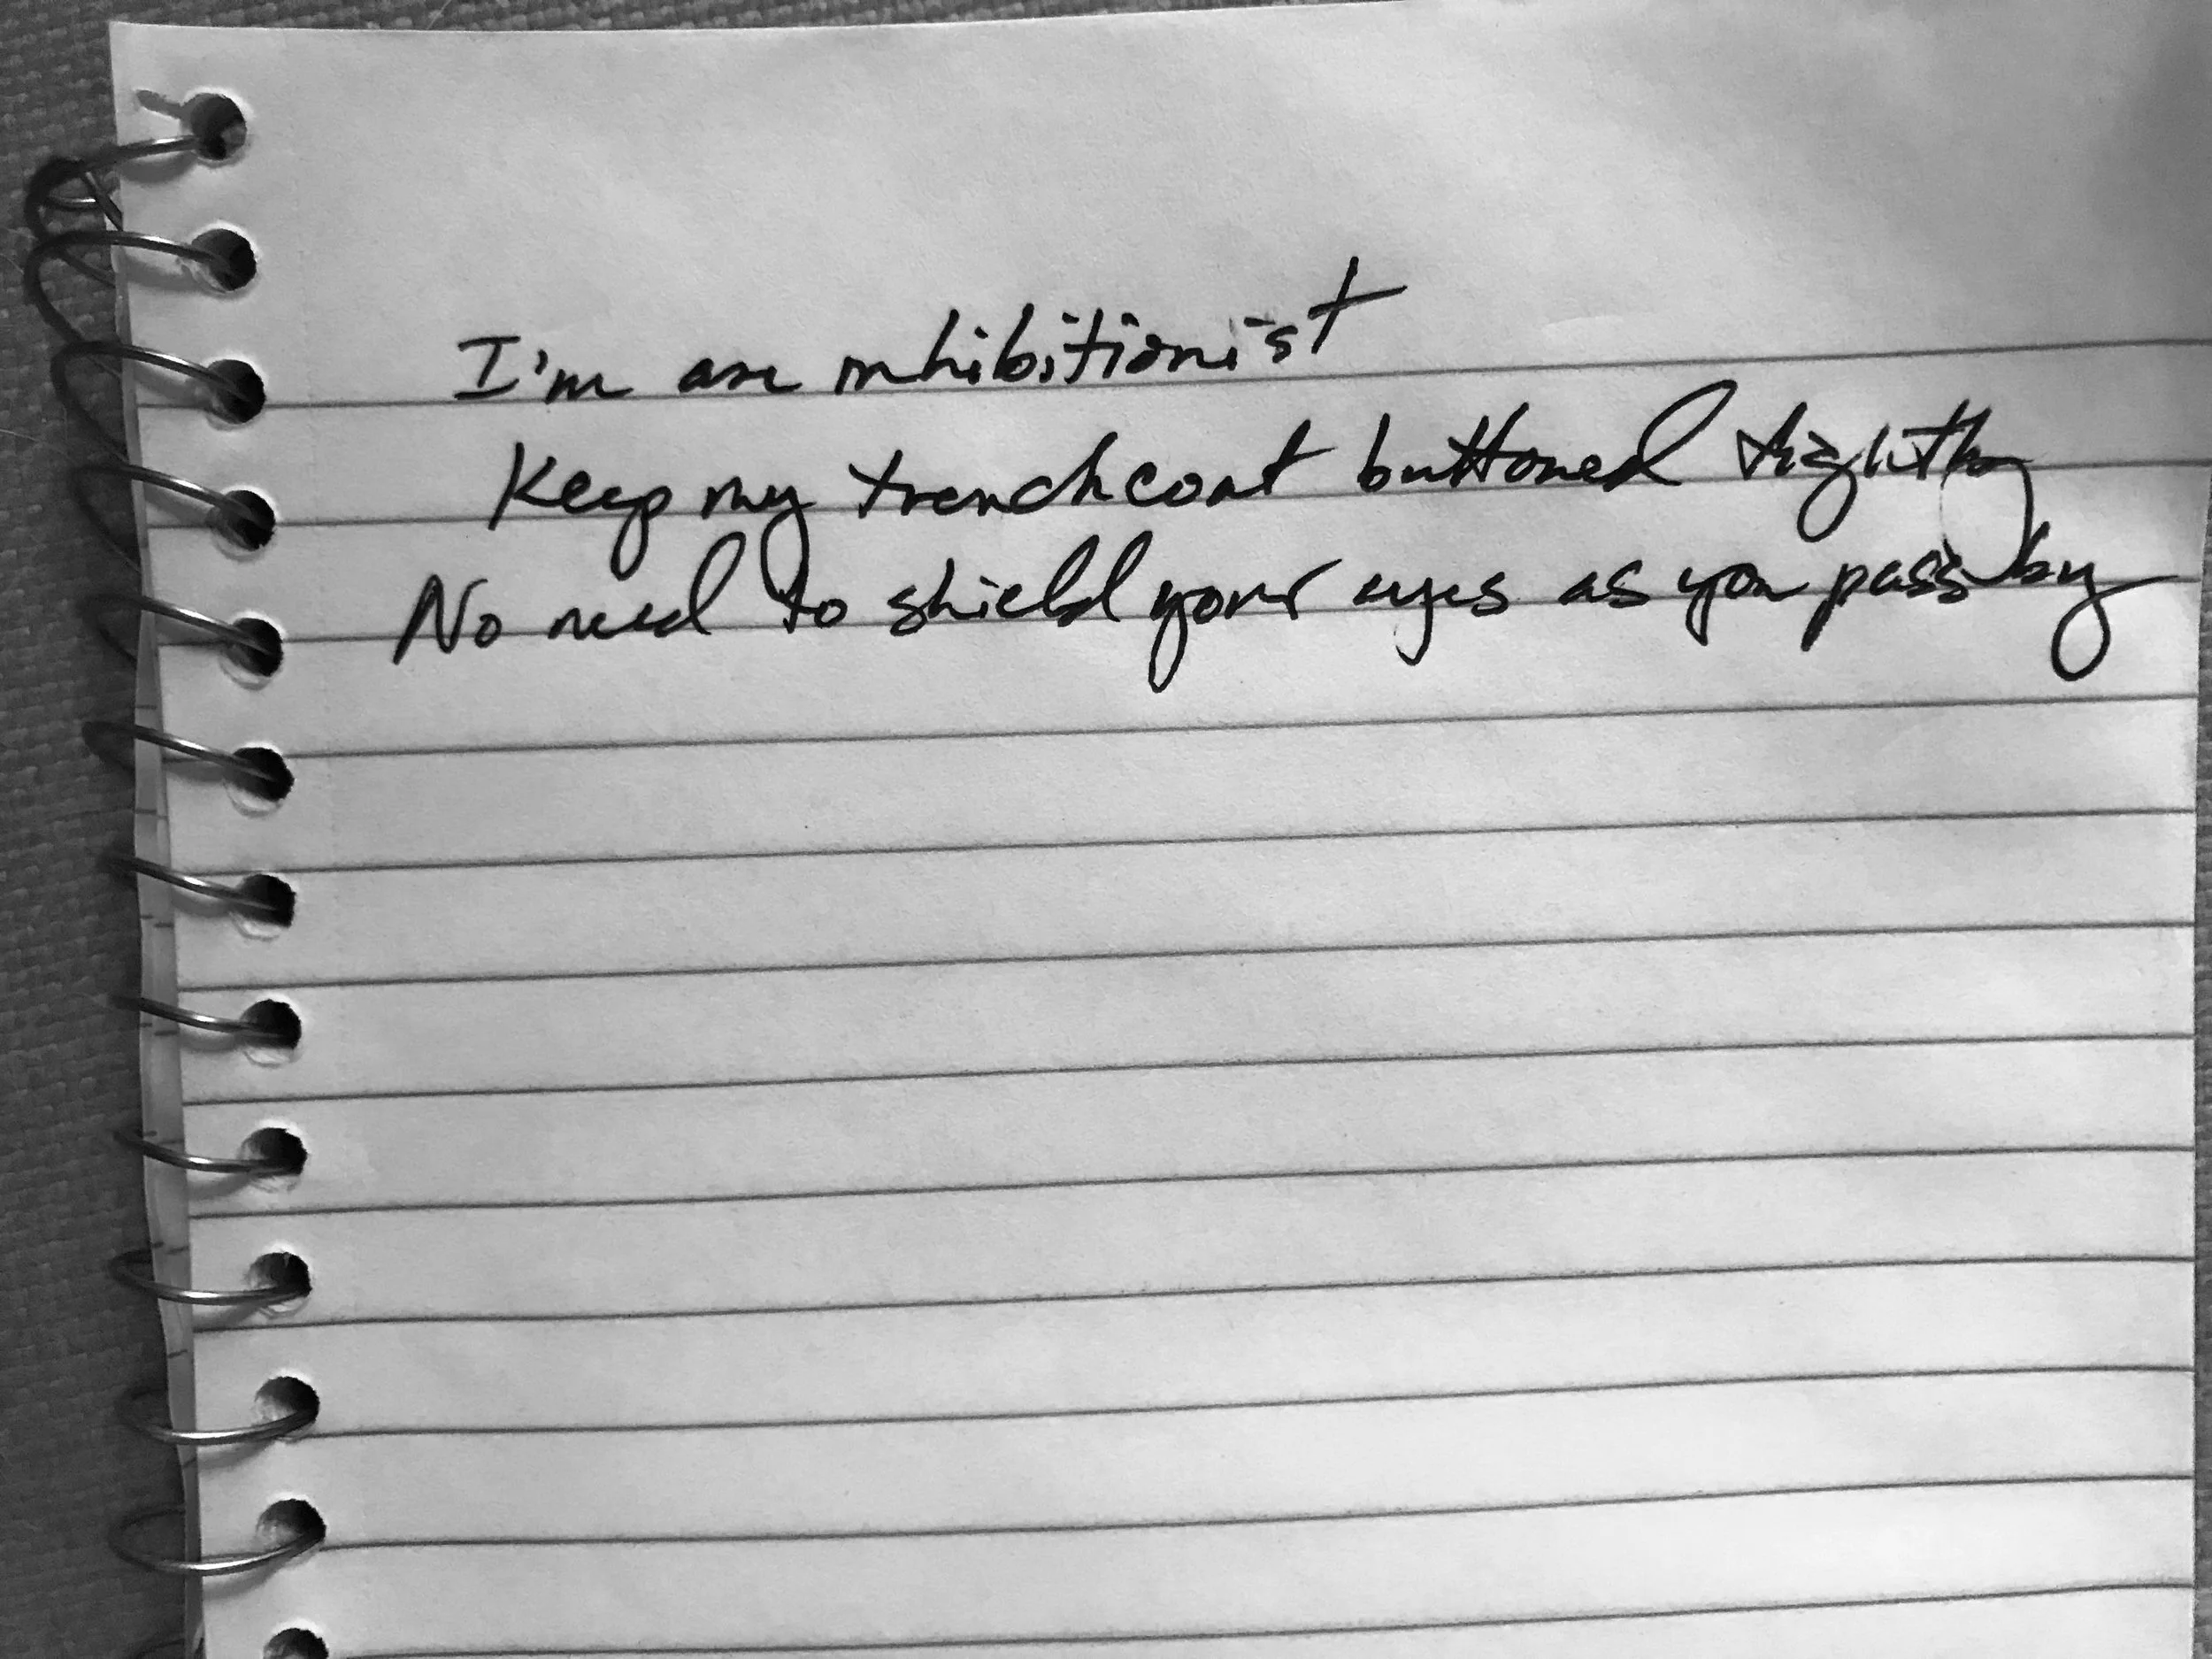 I'm an inhibitionist
Keep my trenchcoat buttoned tightly
No need to shield your eyes as you pass by